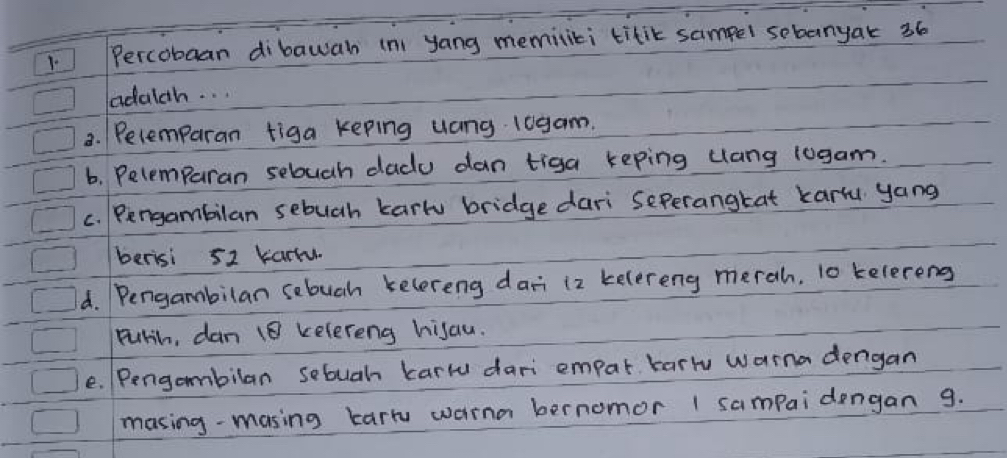 1. Percobaan dibawah ini yang memiliki titik sampel sebanyak 36
adalah ...
a. Pelemparan tiga keping uang logam.
b. Pelemparan sebuah dadu dan tiga keping uang logam.
c. Pengambilan sebuah kartu bridge dari seperangkat kartu yang
berisi 52 kartu.
d. Pengambilan sebuah kelereng dari 12 kelereng merah, 10 kelereng
putih, dan 18 kelereng hijau.
e. Pengambilan sebuah kartu dari empat kartu warna dengan
masing-masing kartu warna bernomor 1 sampai dengan 9.